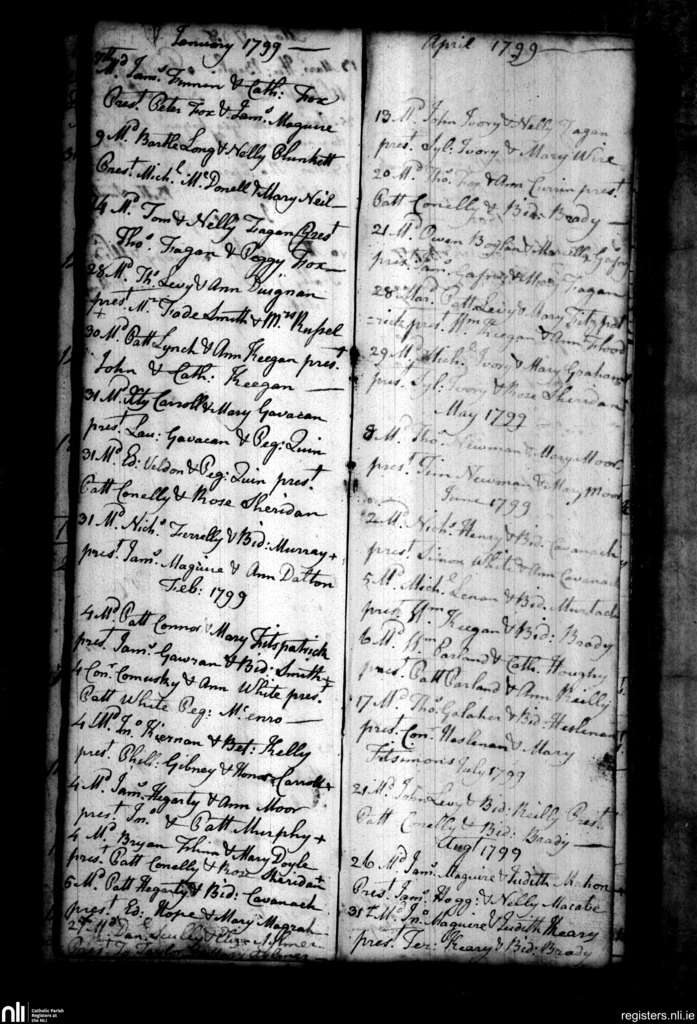 January 1799 —
Md Jams Finnen & Cath: Fox
Prest Peter Fox & Jams Maguire
9 Md Bartle Long & Nelly Plunkett
Prest Michl McDonell & Mary Neil —
14 Md Tom & Nelly Fagan Prest
Thos Fagan & Peggy Fox —
28 Md Ths Levy & Ann Duignan
prest Mr Tade Smith & Mrs Russel
30 Md Patt Lynch & Ann Keegan prest
John & Cath: Keegan —
31 Md Carroll & Mary Gavacan
prest Lau: Gavacan & Peg: Quin
31 Md Ed: Veldon & Peg: Quin prest
Patt Conelly & Rose Sheridan
31 Md Nichs Ferrelly & Bid: Murray +
prest Jams Maguire & Ann Dalton
Feb: 1799
4 Md Patt Connor & Mary Fitspatrick
prest Jams Gawran & Bid: Smith +
4 Con: Comusky & Ann White prest
Patt White Peg: McEnro —
4 Md Jno Kiernan & Bet: Kelly
prest Phell: Gibney & Honor Carroll +
4 Md Jams Hegarty & Ann Moor
prest Jno & Patt Murphy +
4 Md Bryan Flinn & Mary Doyle
prest Patt Conelly & Rose Sheridan
5 Md Patt Hegarty & Bid: Cavanach
prest Ed: Hope & Mary Magrah
29 Md Danl Scully & Eliza Aylmer
Prest Taylor & Mary Aylmer
April 1799 —
13 Md John Ivory & Nelly Fagan
prest Syl: Ivory & Mary Wire
20 Md Thos Fox & Ann Currin prest
Patt Conelly & Bid: Brady —
21 Md Owen Boylan & Marcella Gafny
prest Jams Gafny & Mary Fagan
28 Mar. Patt Levy & Mary Fitzpat
=rick prest Wm Keegan & Ann Flood
29 Md Michl Ivory & Mary Graham
prest Syl: Ivory & Rose Sheridan
May 1799
8 Md Thos Newman & Mary Moor
prest Tim Newman & Mary Moor
June 1799
2 Md Nichs Henry & Bid: Cavanach
prest Simon White & Ann Cavanach
5 Md Michl Lenan & Bid: Murtach
prest Wm Keegan & Bid: Brady
6 Md Wm Parland & Cath: Houghy
prest Patt Parland & Ann Reilly
17 Md Thos Galaher & Bid: Heslenan
prest Con: Heslenan & Mary
Fitsimons July 1799
21 Md John Levy & Bid: Reilly Prest
Patt Conelly & Bid: Brady —
Augt 1799
26 Md Jams Maguire & Judith Mahon
Prest Jams Hogg: & Nelly Macabe
31 Md Jno Maguire & Judith Keary
prest Ter: Keary & Bid: Brady
nli
Catholic Parish
Registers at
the NLI
registers.nli.ie